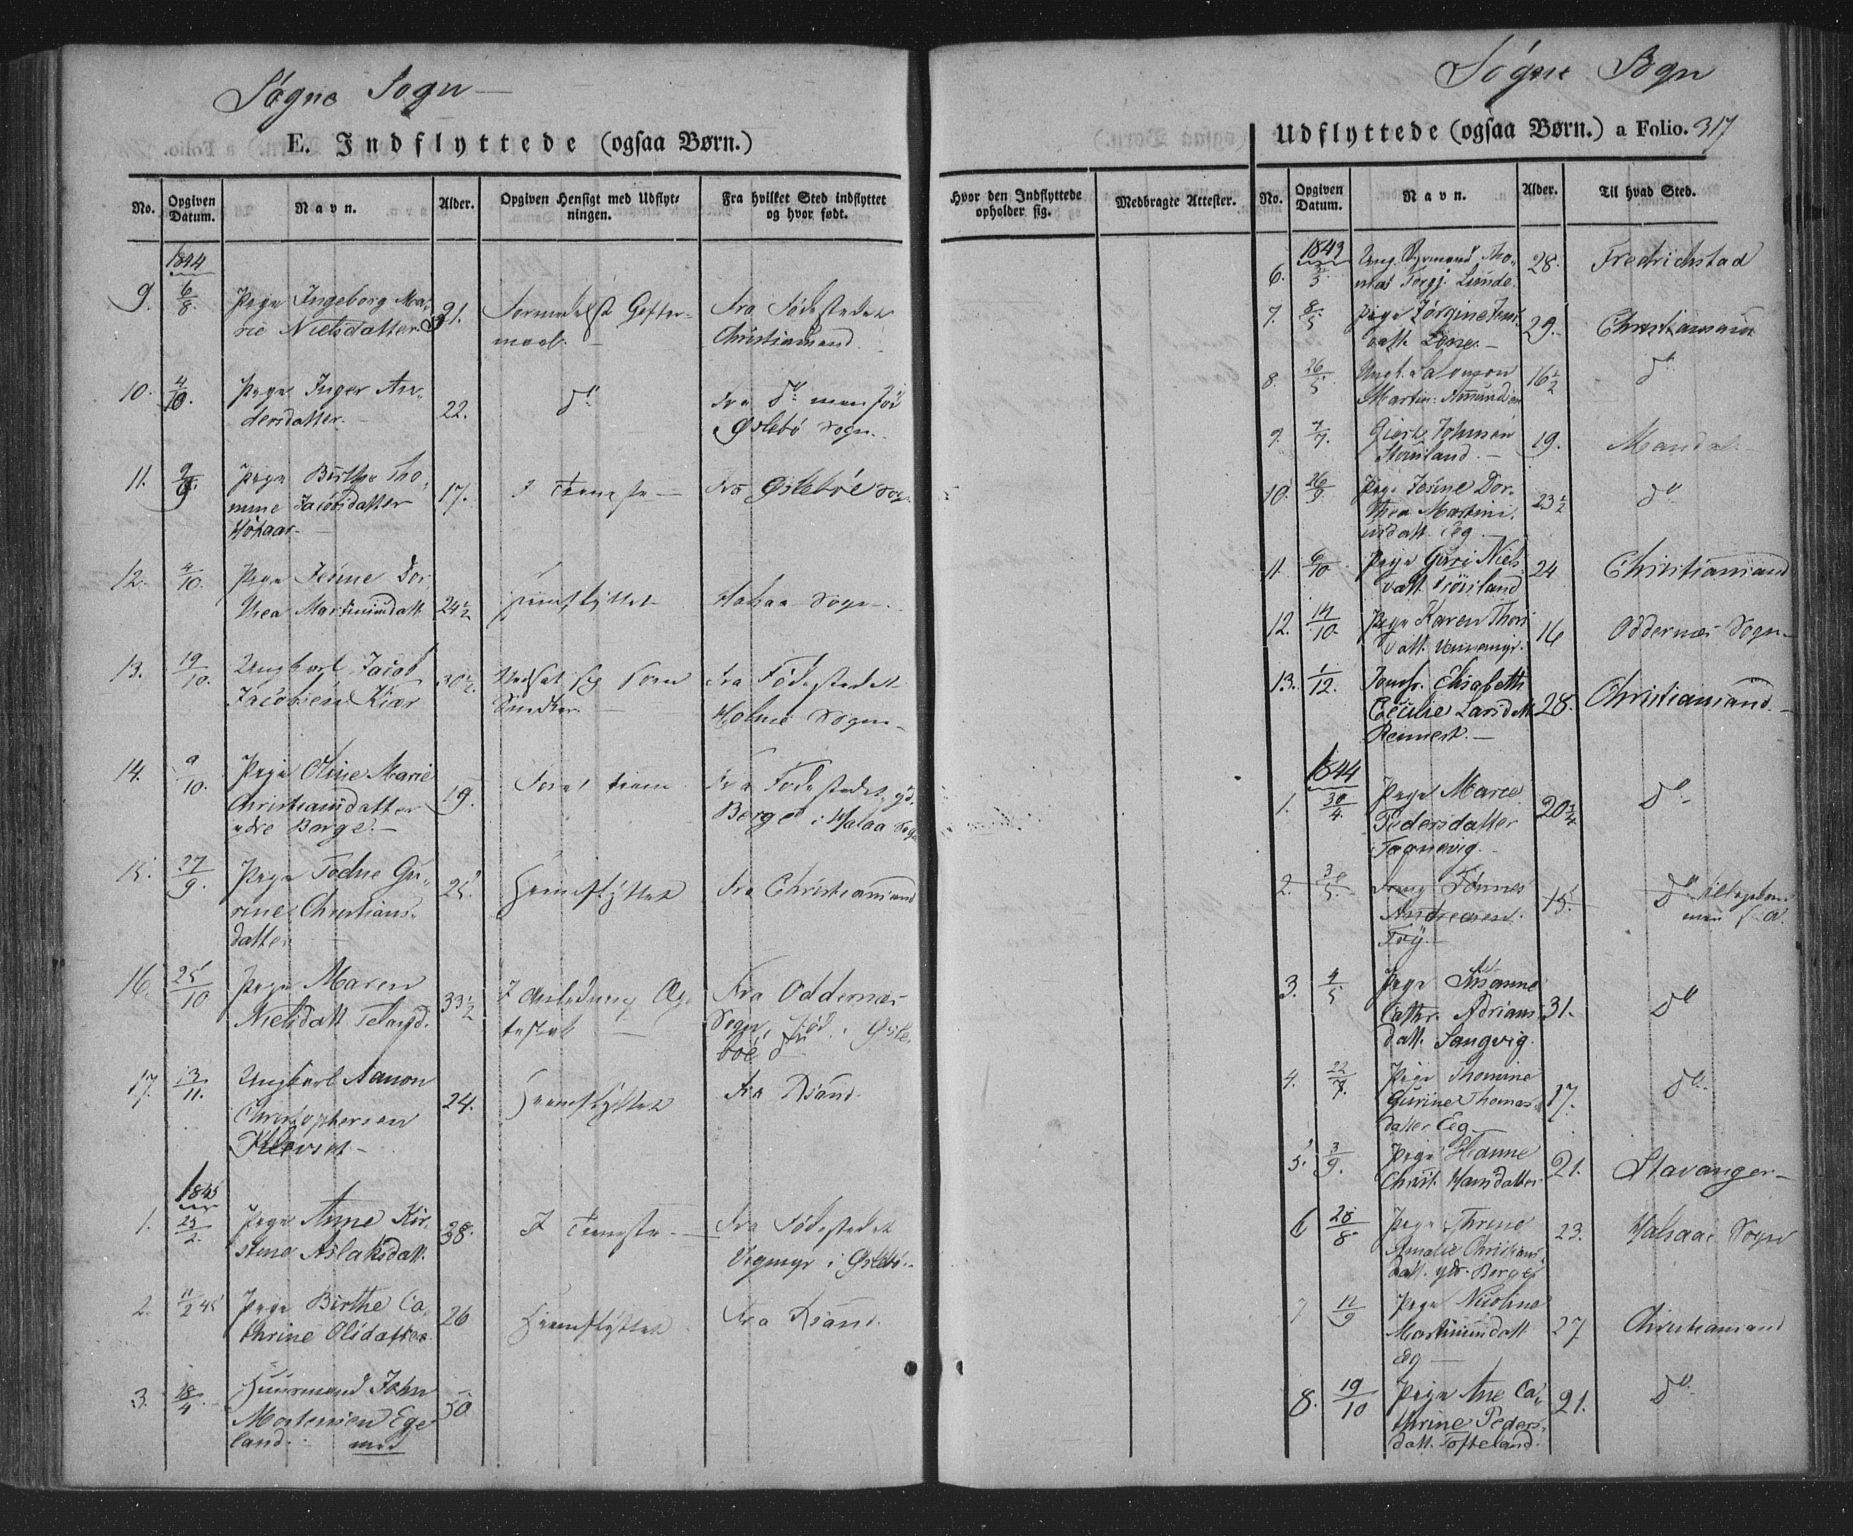 Søgne Sogn
E. Indflyttede (ogsaa Børn.)
No. Opgiven Datum. Navn. Alder. Opgiven Hensigt med Udflytningen. Fra hvilket Sted indflyttet og hvor født.
1844
9. 6/8 Pige Ingeborg Marie Nielsdatter 21. Formedelst Gifter-
maal. Fra Fødestedet
Christiansand.
10. 4/10 Pige Inger An-
dersdatter. 22. do Fra do men fød
Øslebø Sogn.
11. 9/9 Pige Birthe Tho-
mine Jacobsdatter 17. I Tieneste Fra Øslebøe Sogn
12. 4/10. Pige Josine Dor-
thea Martinusdatt 24 1/2 Hjemflyttet Halsaa Sogn.
13. 19/10. Ungkarl Jacob
Jacobsen Kiær 30 1/2. Nedsat sig som
Snedker Fra Fødestedet
Holme Sogn
14. 9/10. Pige Oline Marie
Christiansdatter
ydre Berge. 19. For at tiene Fra Fødestedet yd.
Berge i Halsaa Sogn
15. 27/9. Pige Todne Gu-
rine Christians-
datter 25. Hjemflyttet Fra Christiansand
16. 25/10 Pige Maren
Nielsdatt 33 1/2 I Anledning Æg-
teskab Fra Oddernæs
Sogn, fød i Øsle-
bøe do
17. 13/11. Ungkarl Aanon
Christophersen
Klevset 24. Hjemflyttet Fra Risand.
1845
1. 25/2. Pige Anne Kir-
stine Aslaksdatt. 38. I Tieneste Fra Fødestedet
Vigmyr i Øslebø.
2. 11/2 45 Pige Birthe Ca-
thrine Olsdatter 26 Hjemflyttet Fra Risand.
3. 18/4. Huusmand John
Mortensen Ege-
land. med 50
Søgne Sogn
Udflyttede (ogsaa Børn.) a Folio. 317
Hvor den Indflyttede opholder sig. Medbragte Attester. No. Opgiven Datum. Navn. Alder. Til hvad Sted.
1843
6. Ung. Thomas Torgj. Lunde. 28. Fredrichstad
7. 8/5 Pige Jørgine Jens-
datt. 29. Christiansand
8. 26/5 Ungk. Salomon
Martin Amundsen 16 1/2 do
9. 7/7. Giert Johnsen
19. Mandal
10. 26/9 Pige Josine Dor-
thea Martini-
usdatt. Eeg 23 1/2 do
11. 6/10 Pige Guri Niels-
datt. 24 Christiansand
12. 14/10. Pige Karen Thors-
datt. 16 Oddernæs Sogn
13. 1/12. Jomfr. Elisabeth
Cecilie Larsdatt.
Rennert. 28. Christiansand.
1844
1. 30/4. Pige Maree
Pedersdatter 20 3/4. do
2. 30/5. Tønnes
Andreasen 15. do
3. 4/5 Pige Susanne
Cathr. Adrians-
datt. Langvig. 31. do
4. 22/7. Pige Thomine
Gurine Thomas-
datter Eeg 17. do
5. 3/9. Pige Hanne
Christ. Hansdatter 21. Stavanger
6 28/8 Pige Thrine
Amalie Christians-
datt. ydr. Berge 23. Halsaae Sogn
7 11/9 Pige Nicoline
Martinusdatt
Eg 27 Christiansand
8. 19/10 Pige Ane Ca-
thrine Peders-
datt. Tofteland. 21. do